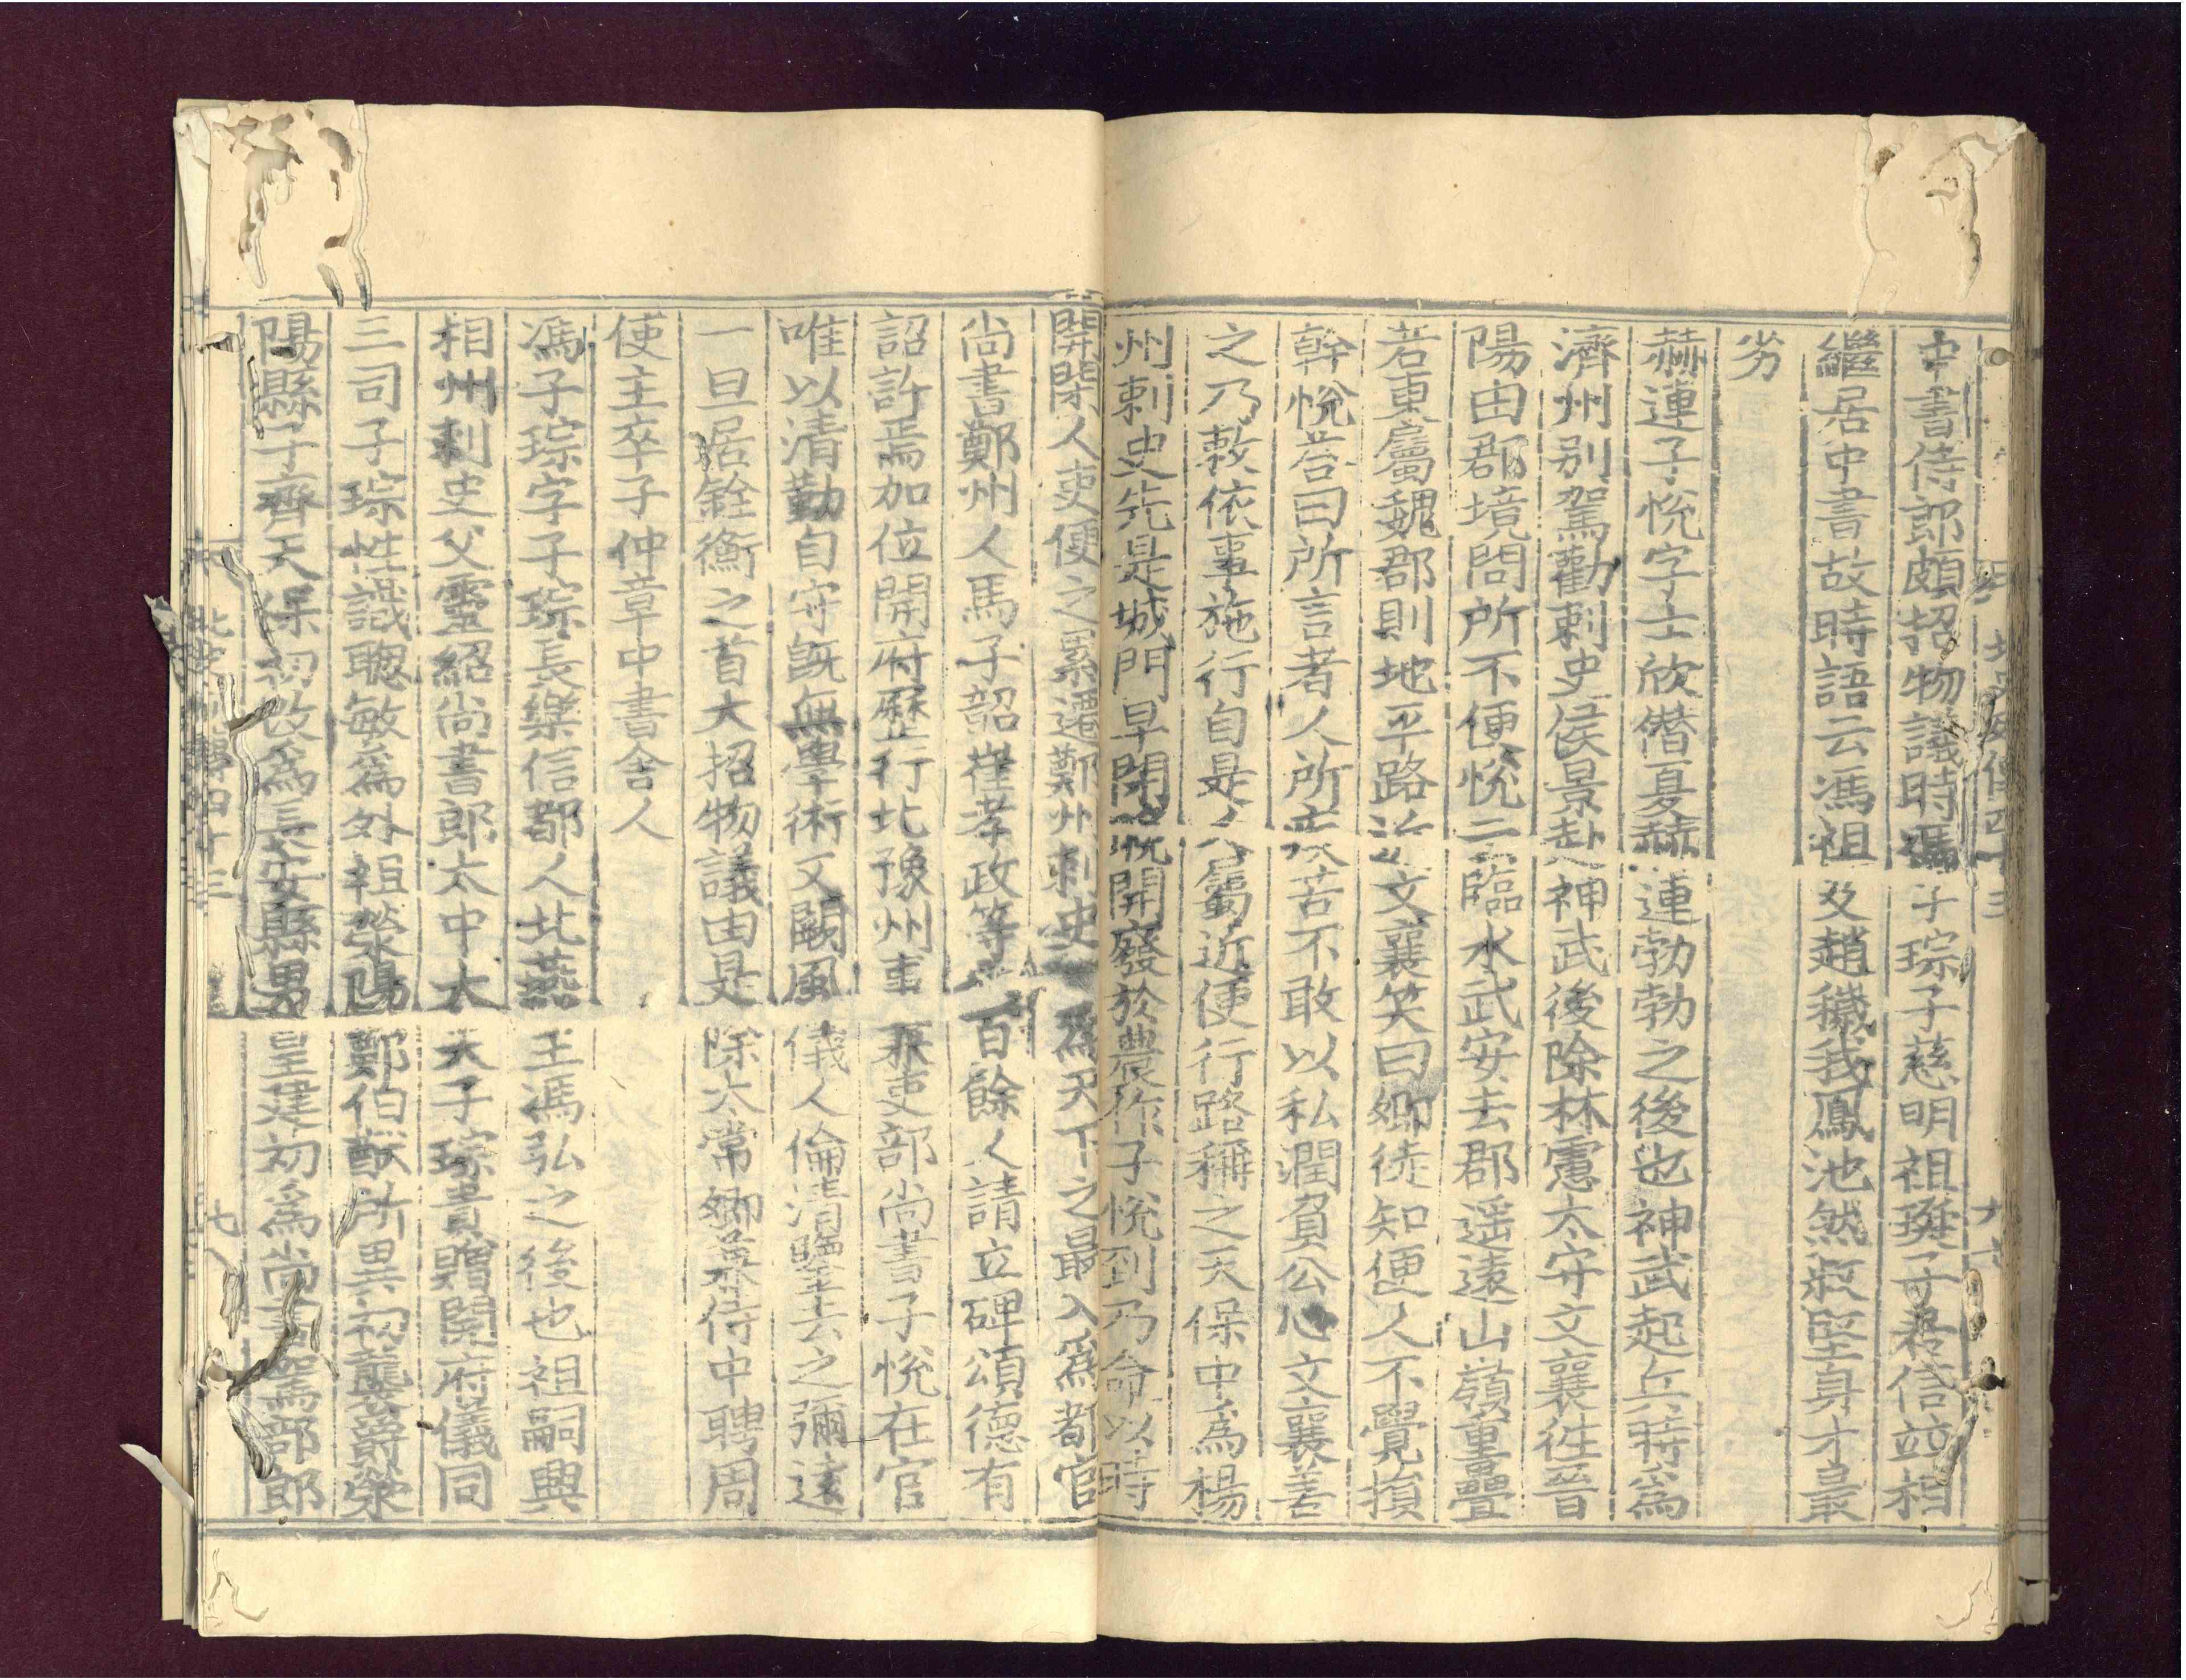 中書侍郎頗招物議時馮子琮子慈明祖珽子君信竝相
繼居中書故時語云馮祖及趙穢我鳳池然叔堅身才最
劣
赫連子悅字士欣僭夏赫連勃勃之後也神武起兵時爲
濟州别駕勸刺史侯景赴神武後除林慮太守文襄往晉
陽由郡境問所不便悅云臨水武安去郡遥遠山嶺重疊
若東屬魏郡則地平路近文襄笑曰卿徒知便人不覺損
幹悅荅曰所言者人所疾苦不敢以私潤負公心文襄善
之乃敕依事施行自是人屬近便行路稱之天保中爲楊
州刺史先是城門早閉晚開廢於農作子悅到乃命以時
開閉人吏便之累遷鄭州刺史 爲天下之最入爲都官
尚書鄭州人馬子韶崔孝政等 百餘人請立碑頌德有
詔許焉加位開府歷行北豫州事兼吏部尚書子悅在官
唯以清勤自守旣無學術又闕風儀人倫清鑒去之彌遠
一旦居銓衡之首大招物議由是除太常卿兼侍中聘周
使主卒子仲章中書舍人
馮子琮字子琮長樂信都人北燕王馮弘之後也祖嗣興
相州刺史父靈紹尚書郎太中大夫子琮貴贈開府儀同
三司子琮性識聰敏爲外祖滎陽鄭伯猷所異初襲爵滎
陽縣子齊天保初改爲長安縣男皇建初爲尚書駕部郎
七